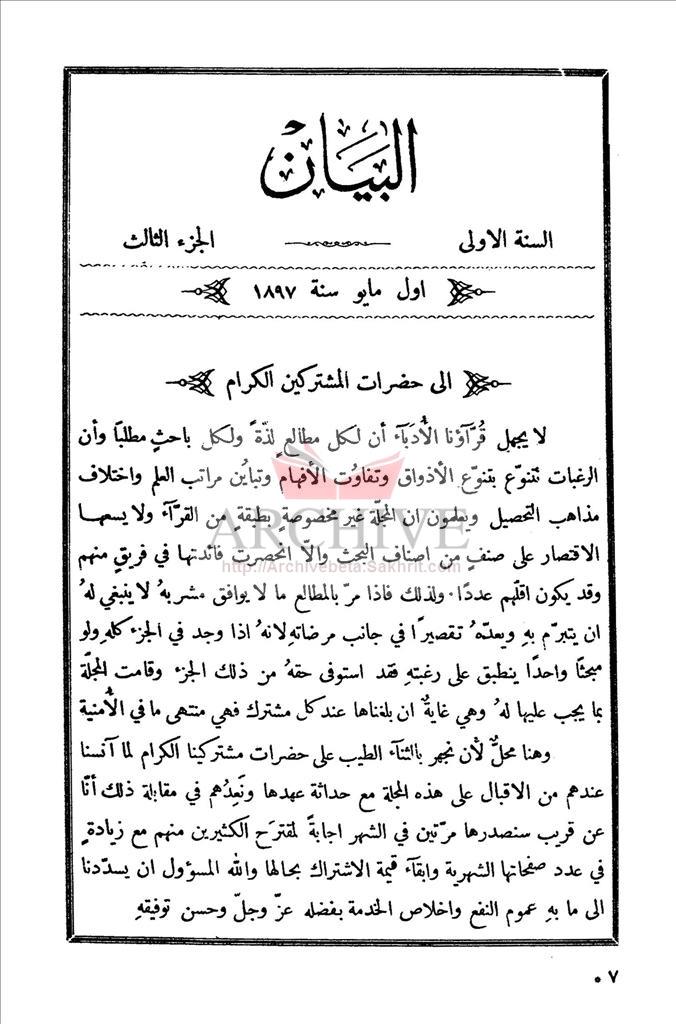 البيان
السنة الاولى
الجزء الثالث
اول مايو سنة ١٨٩٧
الى حضرات المشتركين الكرام
لا يجهل قُرَّآؤنا الأُدَبآء أن لكل مطالعٍ لذّةً ولكل باحثٍ مطلبًا وأن
الرغبات تتنوّع بتنوّع الأذواق وتفاوُت الأفهام وتبايُن مراتب العلم واختلاف
مذاهب التحصيل ويعلمون ان المجلّة غير مخصوصةٍ بطبقةٍ من القرّآء ولا يسعها
الاقتصار على صنفٍ من اصناف البحث والّا انحصرت فائدتها في فريقٍ منهم
وقد يكون اقلّهم عددًا · ولذلك فاذا مرّ بالمطالع ما لا يوافق مشربهُ لا ينبغي لهُ
ان يتبرّم بهِ ويعدّهُ تقصيرًا في جانب مرضاتهِ لانهُ اذا وجد في الجزء كلهِ ولو
مبحثًا واحدًا ينطبق على رغبتهِ فقد استوفى حقهُ من ذلك الجزء وقامت المجلّة
بما يجب عليها لهُ وهي غايةٌ ان بلغناها عند كل مشترك فهي منتهى ما في الأُمنية
وهنا محلٌّ لأن نجهر بالثنآء الطيب على حضرات مشتركينا الكرام لما آنسنا
عندهم من الاقبال على هذه المجلة مع حداثة عهدها ونَعِدُهم في مقابلة ذلك أنّا
عن قريب سنصدرها مرّتين في الشهر اجابةً لمقترَح الكثيرين منهم مع زيادةٍ
في عدد صفحاتها الشهرية وابقآء قيمة الاشتراك بحالها والله المسؤول ان يسدّدنا
الى ما بهِ عموم النفع واخلاص الخدمة بفضله عزّ وجلّ وحسن توفيقهِ
ARCHIVE
http://Archivebeta.Sakhrit.com
٠٧